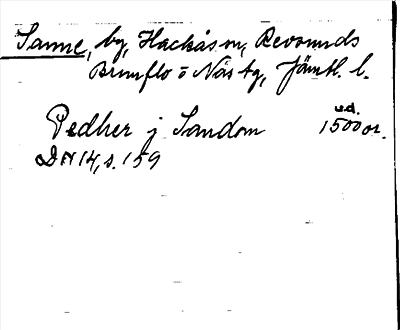 Sanne, by, Hackås sn, Revsunds
Brunflo o Näs tg, Jämtl. l.
u.d.
Pedher j Sandom 1500 or.
DN 14, s. 159